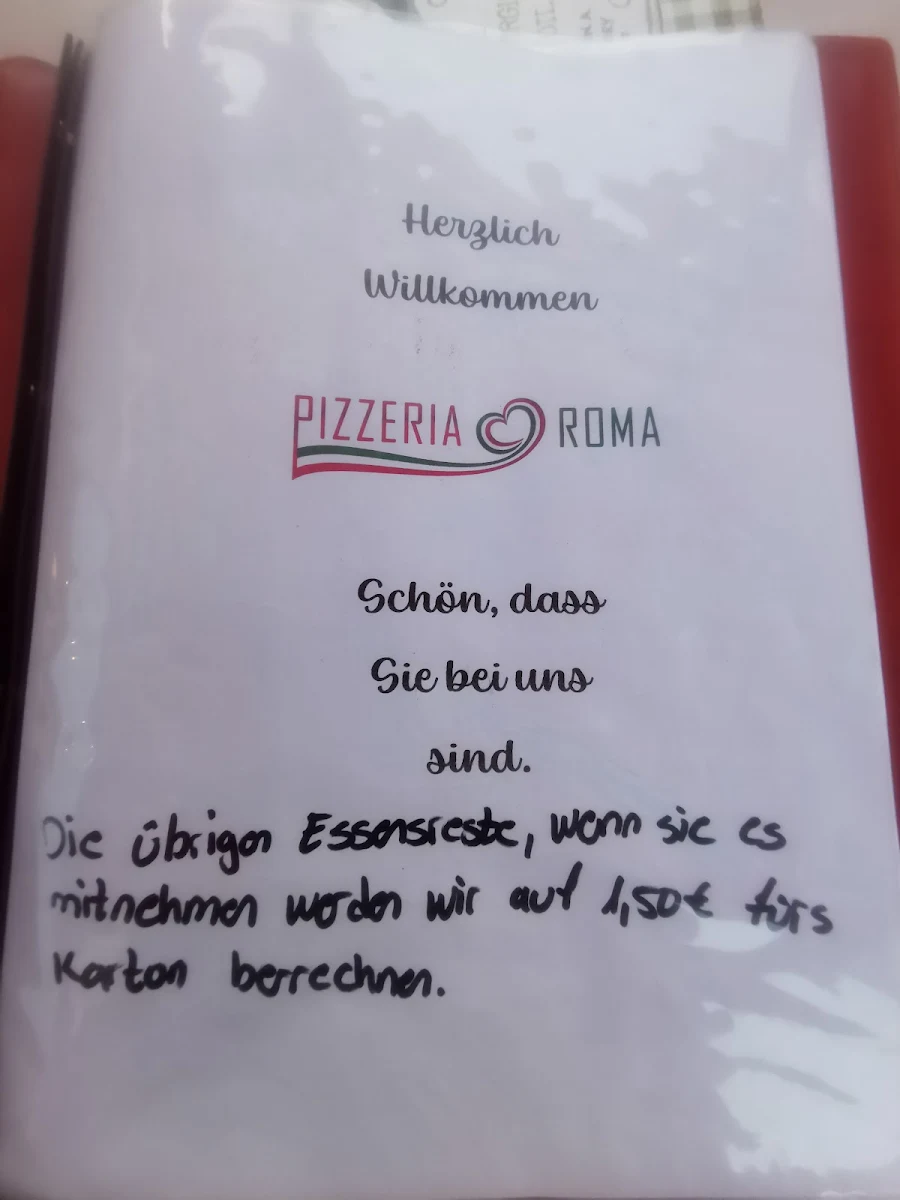 Herzlich
Willkommen
PIZZERIA ROMA
Schön, dass
Sie bei uns
sind.
Die übrigen Essensreste, wenn sie es
mitnehmen werden wir auf 1,50€ fürs
Karton berrechnen.